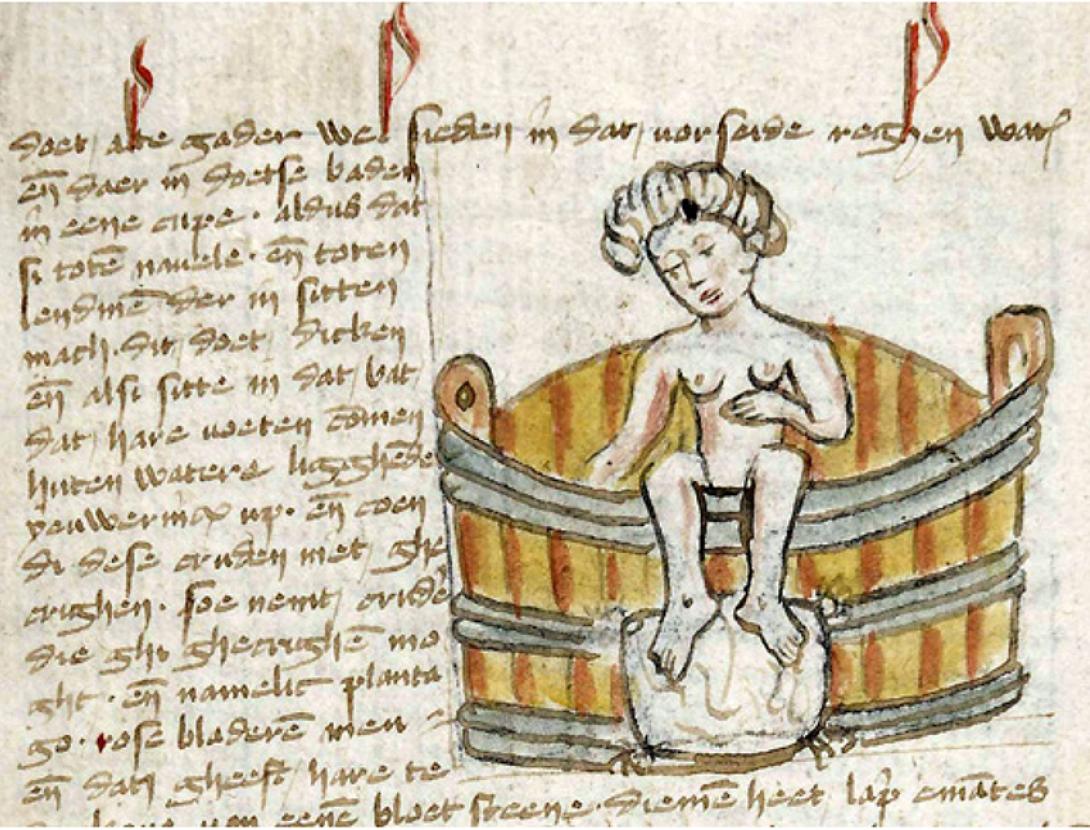 doet alte gader wel sieden in dat vorseide reghen wat
en̄ daer in doetse baden
in eene cupe · aldus dat
si totē navele · en̄ toten
lendinē der in sitten
mach · dit doet dicken
en̄ alsi sitte in dat vat
dat hare voeten comen
huten watere ligghēde
up · en̄ coen
di dese cruden niet ghe
crighen · soe nemt crude
die ghi ghecrighē mo
ght · en̄ namelic planta
go · rose bladerē men
en̄ dat gheeft hare te
van eenē bloet steene · diemē heet lap ematēs